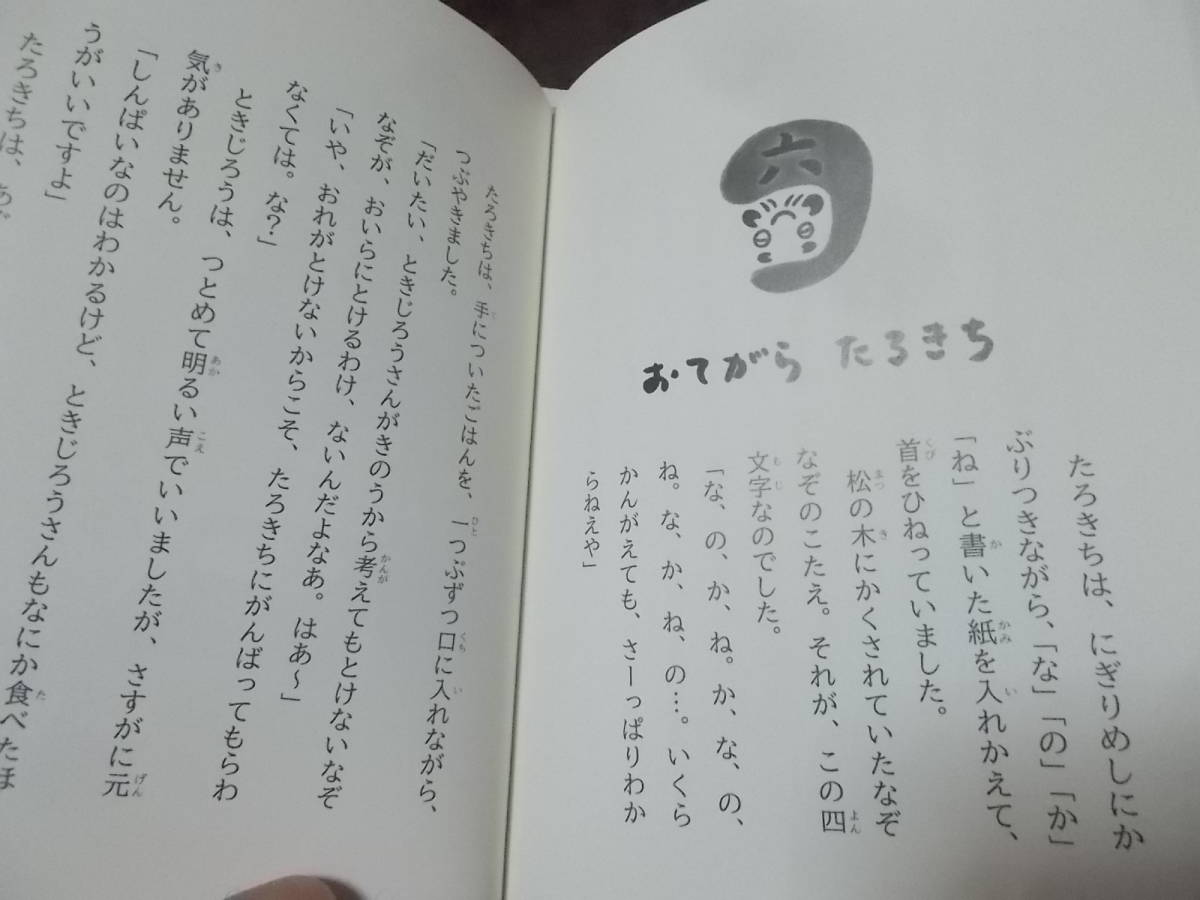 六
おてがら たろきち
たろきちは、にぎりめしにか
ぶりつきながら、「な」「の」「か」
「ね」と書いた紙を入れかえて、
首をひねっていました。
松の木にかくされていたなぞ
なぞのこたえ。それが、この四
文字なのでした。
「な、の、か、ね。か、な、の、
ね。な、か、ね、の…。いくら
かんがえても、さーっぱりわか
らねえや」
たろきちは、手についたごはんを、一つぶずつ口に入れながら、
つぶやきました。
「だいたい、ときじろうさんがきのうから考えてもとけないなぞ
なぞが、おいらにとけるわけ、ないんだよなあ。はあ～」
「いや、おれがとけないからこそ、たろきちにがんばってもらわ
なくては。な？」
ときじろうは、つとめて明るい声でいいましたが、さすがに元
気がありません。
「しんぱいなのはわかるけど、ときじろうさんもなにか食べたほ
うがいいですよ」
たろきちは、